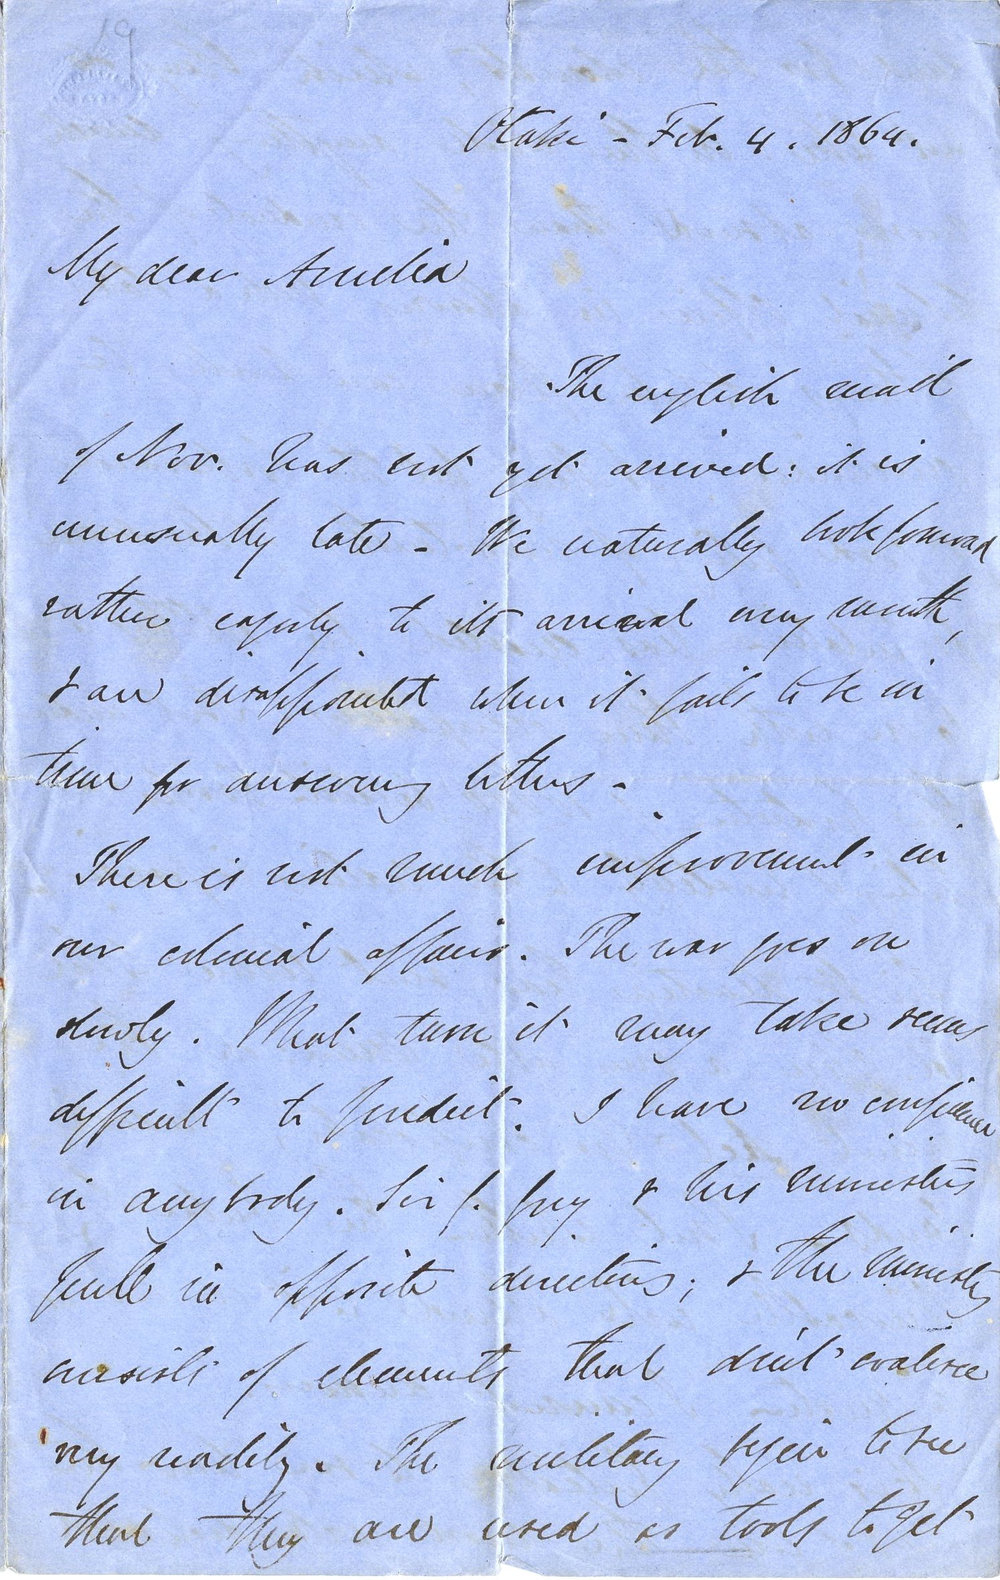 19
Otaki - Feb. 4. 1864.
My dear Amelia
The english mail
of Nov. has not yet arrived: it is
unusually late - We naturally look forward
rather eagerly to its arrival every month,
& are disappointed when it fails to be in
time for answering letters -
There is not much improvement in
our colonial affairs. The war goes on
slowly. What turn it may take seems
difficult to predict. I have no confidence
in anybody. Sir G. Grey & his ministers
pull in opposite directions; & the ministry
consists of elements that don't coalesce
very readily. The military begin to see
that they are used as tools to get